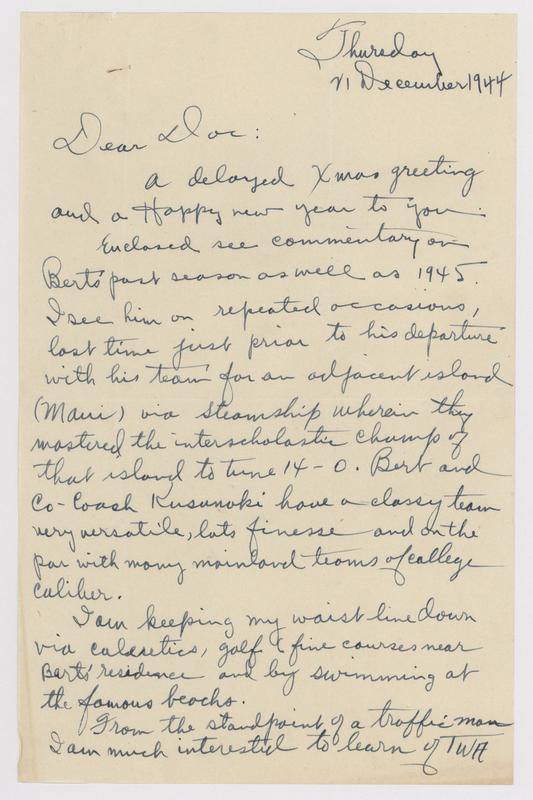 Thursday
21 December 1944
Dear Doc:
A delayed Xmas greeting
and a Happy new year to you.
Enclosed see commentary on
Bert's past season as well as 1945.
I see him on repeated occasions,
last time just prior to his departure
with his team for an adjacent island
(Maui) via steamship wherein they
mastered the interscholastic champ of
that island to tune 14-0. Bert and
Co-Coach Kusunoki have a classy team
very versatile, lots finesse and on the
par with many mainland teams of college
caliber.
I am keeping my waist line down
via calastics, golf & fine courses near
Berts' residence and by swimming at
the famous beachs.
From the standpoint of a traffic man
I am much interested to learn of TWA